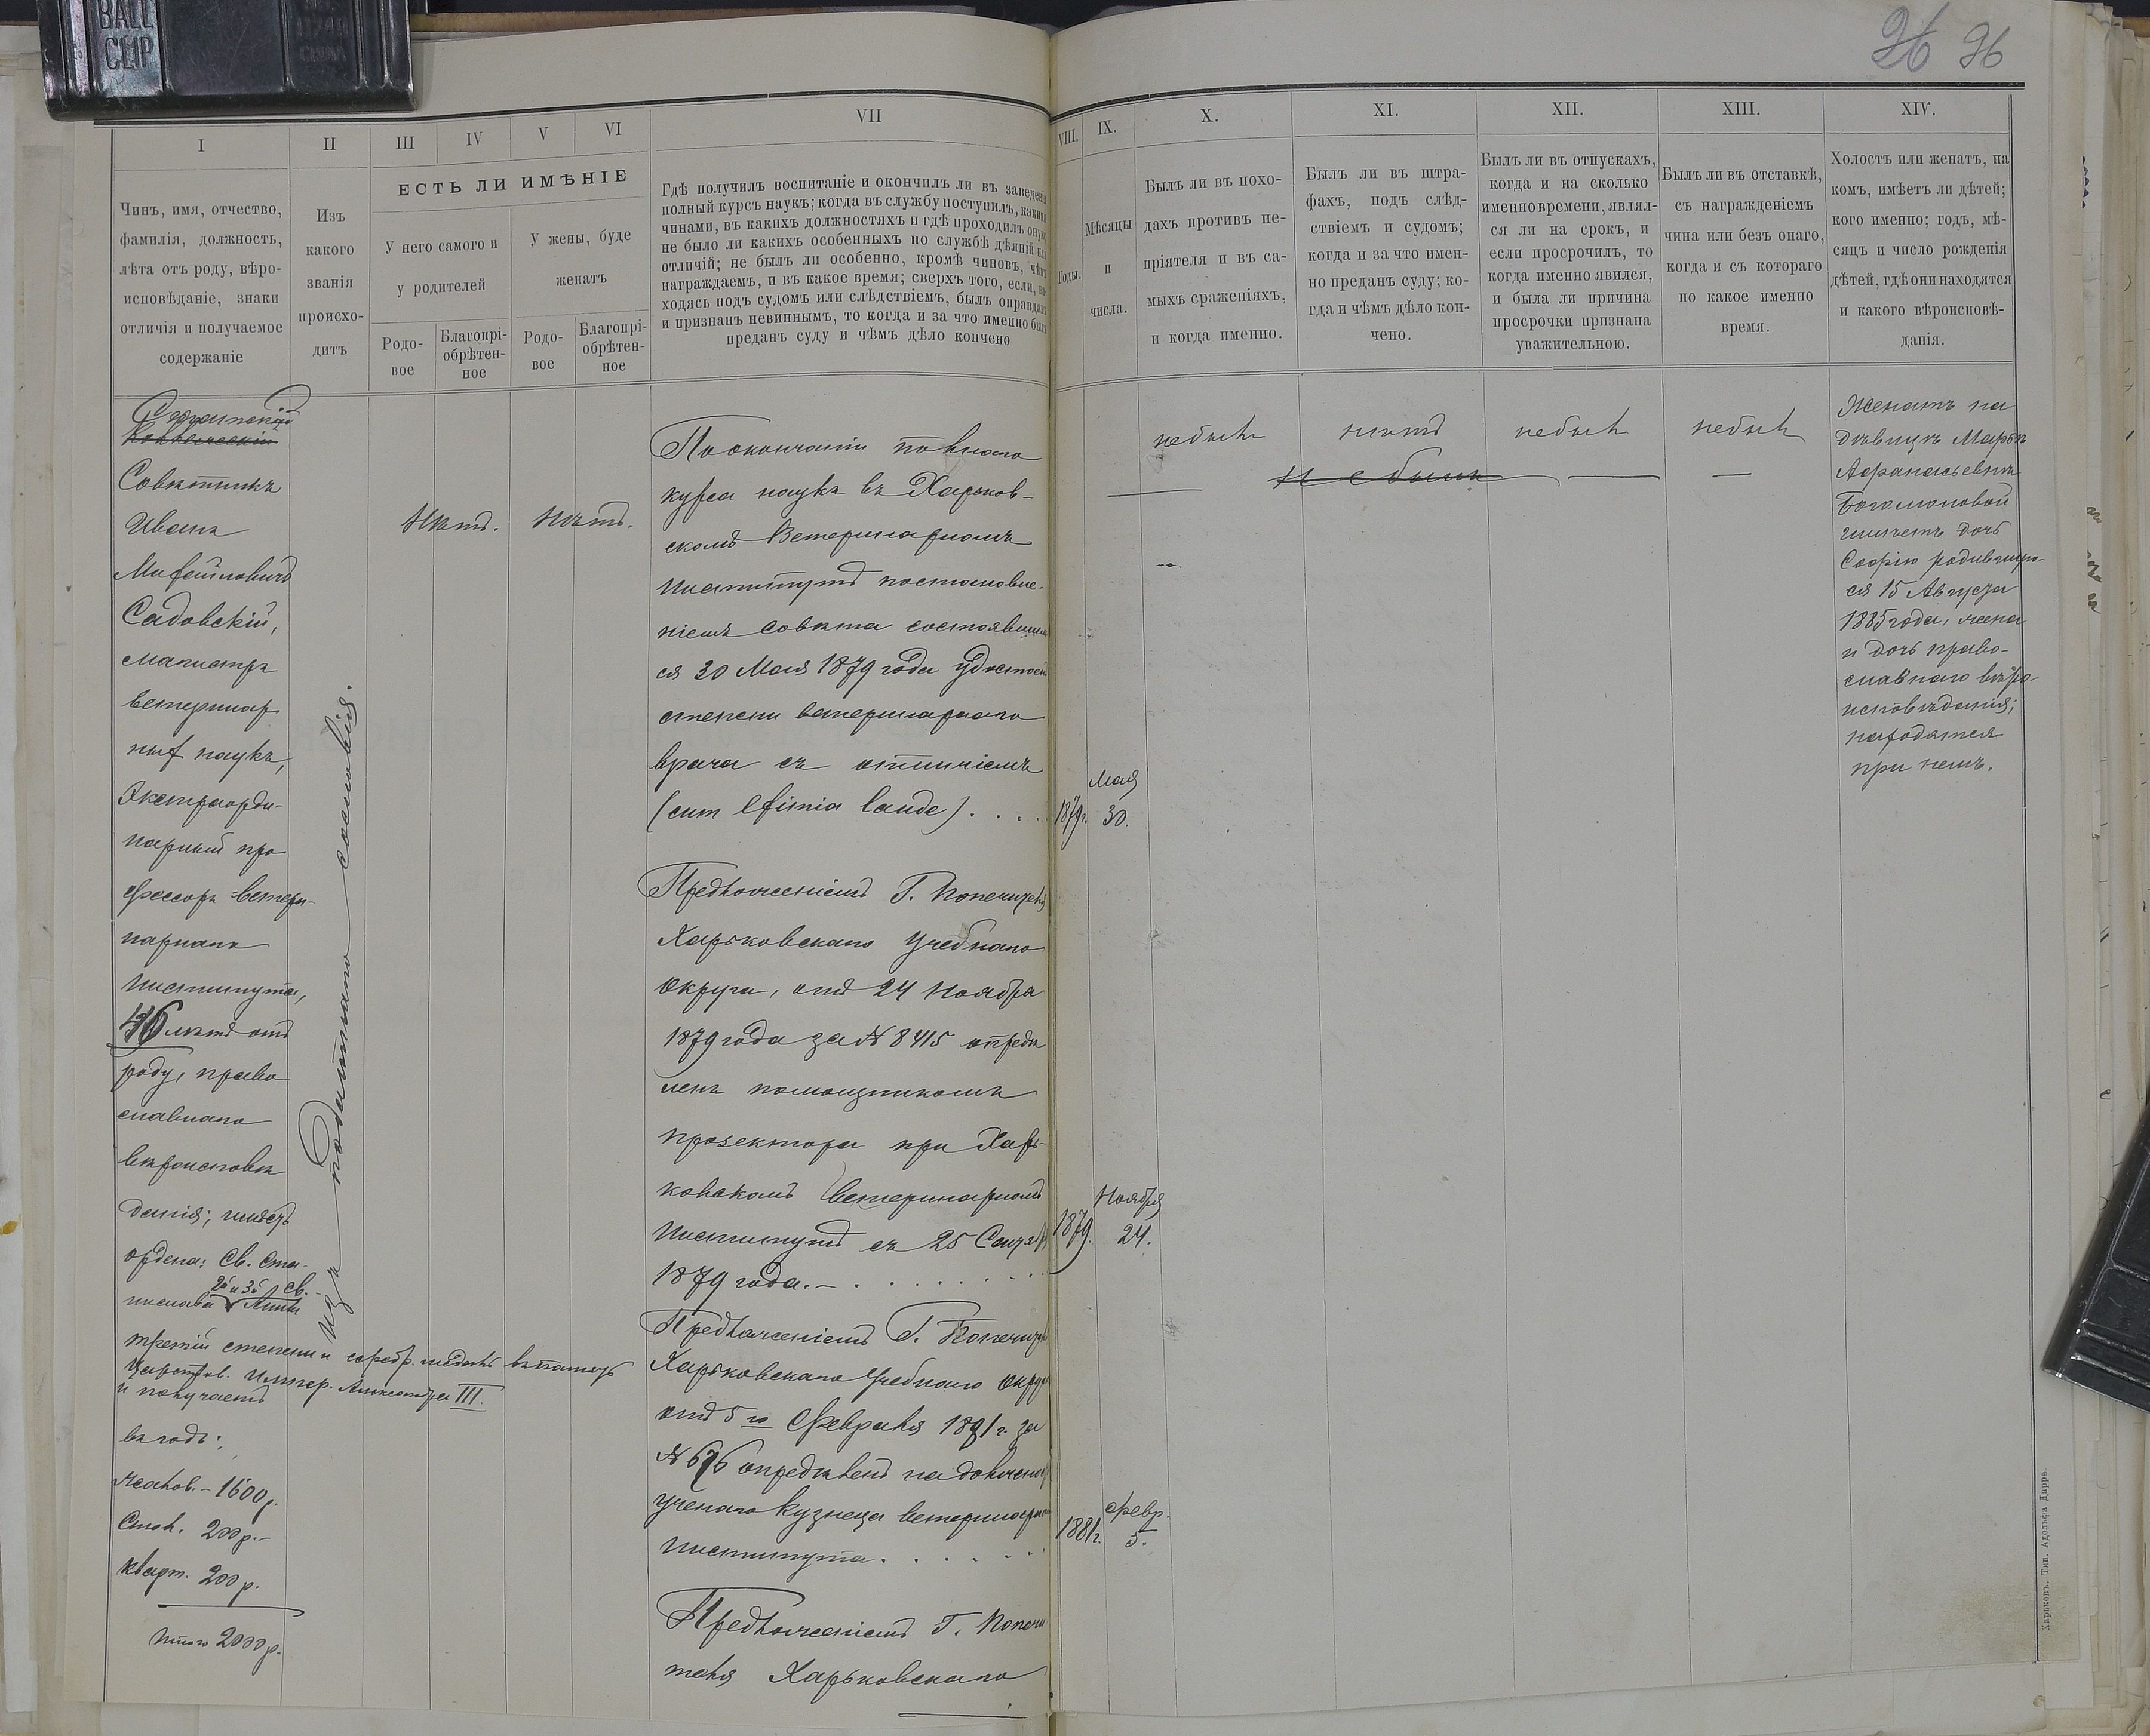 BALL
CLIP
96 96
I
II
III
IV
V
VI
VII
VIII.
IX.
X.
XI.
XII.
XIII.
XIV.
Чинъ, имя, отчество,
фамилія, должность,
лѣта отъ роду, вѣро-
исповѣданіе, знаки
отличія и получаемое
содержаніе
Изъ
какого
званія
происхо-
дитъ
ЕСТЬ ЛИ ИМѢНІЕ
У него самого и
у родителей
У жены, буде
женатъ
Родо-
вое
Благопрі-
обрѣтен-
ное
Родо-
вое
Благопрі-
обрѣтен-
ное
Гдѣ получилъ воспитаніе и окончилъ ли въ заведеніи
полный курсъ наукъ; когда въ службу поступилъ, какими
чинами, въ какихъ должностяхъ и гдѣ проходилъ оную;
не было ли какихъ особенныхъ по службѣ дѣяній или
отличій; не былъ ли особенно, кромѣ чиновъ, чѣмъ
награждаемъ, и въ какое время; сверхъ того, если, на-
ходясь подъ судомъ или слѣдствіемъ, былъ оправданъ
и признанъ невиннымъ, то когда и за что именно былъ
преданъ суду и чѣмъ дѣло кончено
Годы.
Мѣсяцы
и
числа.
Былъ ли въ похо-
дахъ противъ не-
пріятеля и въ са-
мыхъ сраженіяхъ,
и когда именно.
Былъ ли въ штра-
фахъ, подъ слѣд-
ствіемъ и судомъ;
когда и за что имен-
но преданъ суду; ко-
гда и чѣмъ дѣло кон-
чено.
Былъ ли въ отпускахъ,
когда и на сколько
именно времени, являл-
ся ли на срокъ, и
если просрочилъ, то
когда именно явился,
и была ли причина
просрочки признана
уважительною.
Былъ ли въ отставкѣ,
съ награжденіемъ
чина или безъ онаго,
когда и съ котораго
по какое именно
время.
Холостъ или женатъ, на
комъ, имѣетъ ли дѣтей;
кого именно; годъ, мѣ-
сяцъ и число рожденія
дѣтей, гдѣ они находятся
и какого вѣроисповѣ-
данія.
Коллежскій
Совѣтникъ
Иванъ
Садовскій,
магистръ
ветеринар
ных наукъ,
Экстраорди-
нарный про
фессоръ ветери-
нарнаго
Института,
46 лѣтъ отъ
роду, право
славнаго
вѣроисповѣ
данія; имѣетъ
ордена: Св. Ста-
2й и 3й Св.
нислава Анны
третій степени и серебр. медаль въ память
Царствов. Импер. Александра III.
и получаетъ
въ годъ:
жалов. - 1600 р.
Стол. 200 р. -
кварт. 200 р.
Итого 2000 р.
Изъ податнаго сословія.
Нѣтъ.
Нѣтъ.
По окончаніи полнаго
курса наукъ въ Харьков-
скомъ Ветеринарномъ
Институтѣ постановле-
ніемъ совѣта состоявшим
ся 30 Мая 1879 года удостоенъ
степени ветеринарнаго
врача съ отличіемъ
(cum eximia laude) . . . .
1879 г.
Мая
30.
Предложеніемъ Г. Попечителя
Харьковскаго Учебнаго
Округа, отъ 24 Ноября
1879 года за № 8415 опредѣ
ленъ помощникомъ
прозектора при Харь-
ковскомъ Ветеринарномъ
Институтѣ съ 25 Сентября
1879 года. - . . . . . . . .
1879.
Ноября
24.
Предложеніемъ Г. Попечителя
Харьковскаго Учебнаго Округа
отъ 5 го Февраля 1881 г. за
№ 676 опредѣленъ на должность
ученаго кузнеца ветеринарнаго
Института. . . . . .
1881 г.
Февр.
5.
Предложеніемъ Г. Попечи
теля Харьковскаго
не былъ
нѣтъ
не былъ
не былъ
Не былъ
Женатъ на
дѣвицѣ Марьѣ
Афанасьевнѣ
Богомоловой
имѣетъ дочь
Софію родившую-
ся 15 Августа
1885 года, жена
и дочь право-
славнаго вѣро-
исповѣданія;
находятся
при немъ.
Харьковъ. Тип. Адольфа Дарре.